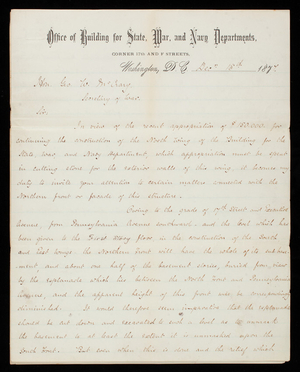 Office of Building for State, War, and Navy Departments,
CORNER 17TH AND F STREETS,
Washington, D.C. Dec. 15th 1877
Hon. Geo. W. McCrary
Secretary of War
Sir
In view of the recent appropriation of $ for
continuing the construction of the North Wing of the Building for the
State, War and Navy Department, which appropriation must be spent
in cutting stone for the exterior walls of this wing, it becomes my
duty to invite your attention to certain matters connected with the
Northern front or facade of this structure.
Owing to the grade of 17th Street and Executive
Avenue, from Pennsylvania Avenue southward, and the level which has
been given to the First Story floor in the construction of the South
and East wings, the Northern front will have the whole of its sub-base-
ment, and about one half of the basement stories, buried from view
by the esplanade which lies between the North front and Pennsylvania
Avenue, and the apparent height of this front will be correspondingly
diminished. It would therefore seem imperative that the esplanade
should be cut down and excavated to such a level as to uncover
the basement to at least the extent it is uncovered upon the
South front. But even when this is done and the relief which